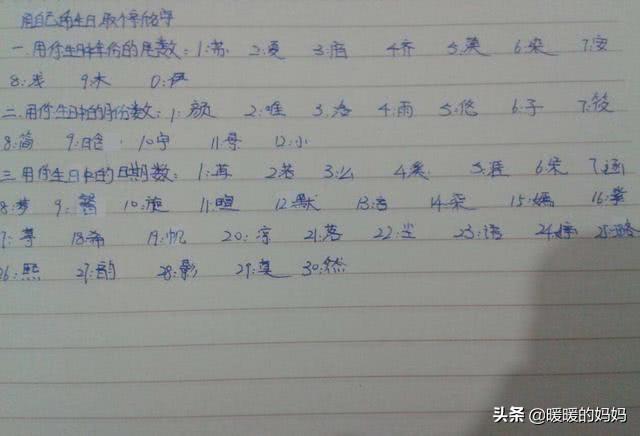 用自己的生日取个字的字
一.用你生日中年份的尾数: 1:苏 2:夏 3:洛 4:齐 5:莫 6:染 7:安
8:浅 9:木 0:伊
二.用你生日中的月份数: 1:颜 2:唯 3:洛 4:雨 5:悠 6:子 7:筱
8:简 9:晗 10:宁 11:导 12:小
三.用你生日中的日期数: 1:苒 2:若 3:么 4:奚 5:涯 6:宋 7:
8:梦 9: 10:旋 11:暄 12:默 13:言 14:采 15:嫣 16:
17: 18:希 19:帆 20:凉 21:落 22:尘 23:语 24:婷 25:璐
26:熙 27:韵 28:影 29:莫 30:然
头条 @暖暖的妈妈